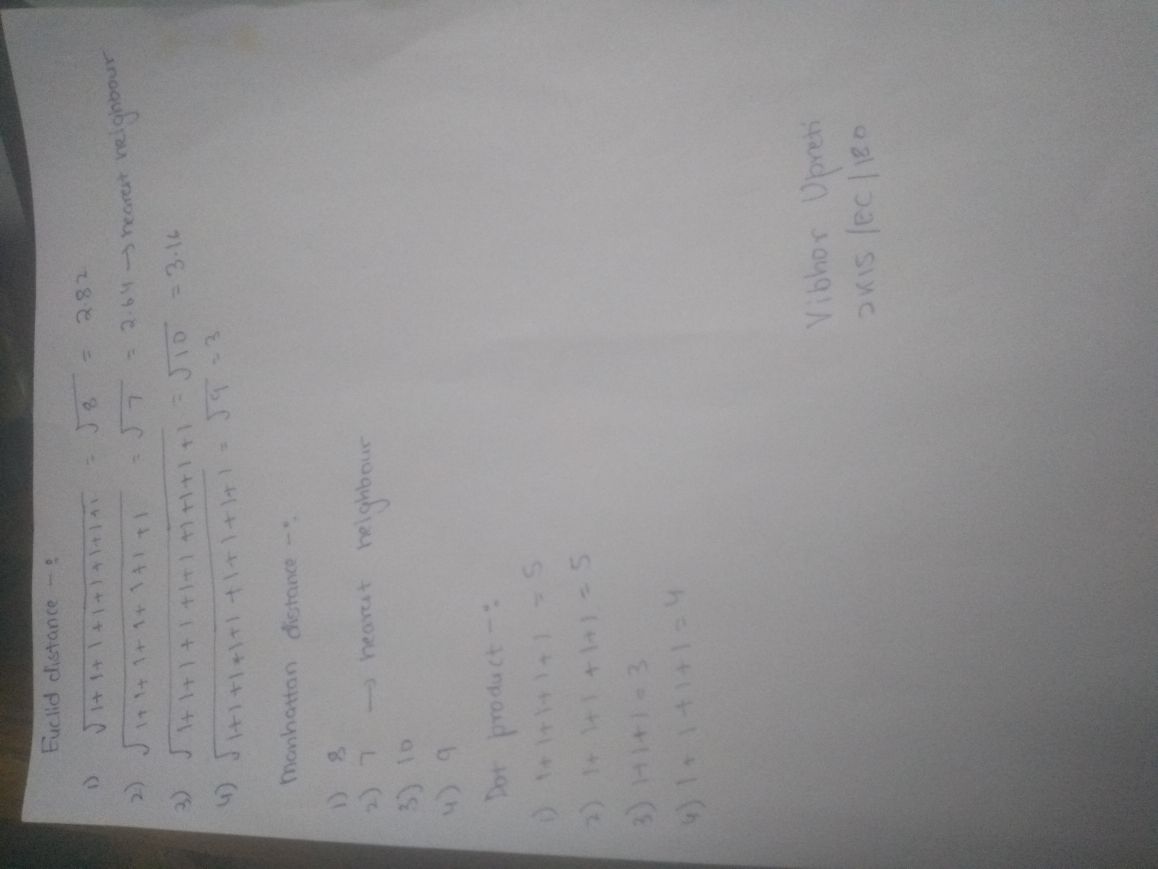 Euclid distance -:
1) √1+1+1+1+1+1+1+1 = √8 = 2.82
2) √1+1+1+1+1+1+1 = √7 = 2.64 → nearest neighbour
3) √1+1+1+1+1+1+1+1+1+1 = √10 = 3.16
4) √1+1+1+1+1+1+1+1+1 = √9 = 3
Manhattan distance -:
1) 8
2) 7 → nearest neighbour
3) 10
4) 9
Dot product -:
1) 1+1+1+1+1 = 5
2) 1+1+1+1+1 = 5
3) 1+1+1 = 3
4) 1+1+1+1 = 4
Vibhor Upreti
2K15/EC/180